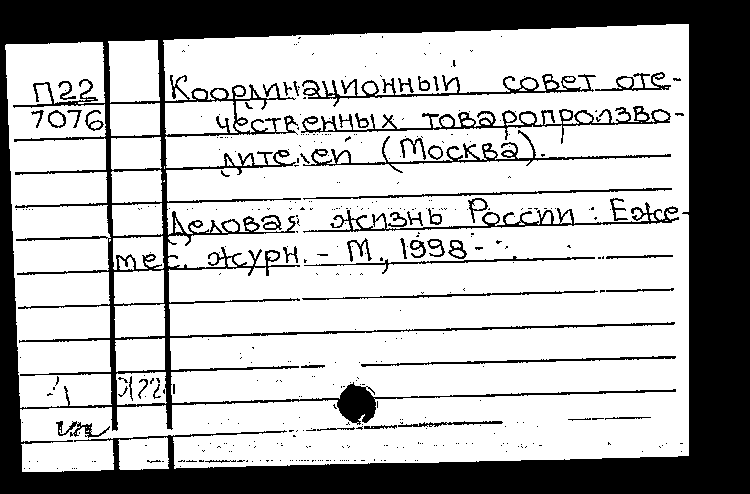 П22 Координационный совет оте-
7076 чественных товаропроизво-
дителей (Москва).
Деловая жизнь России : Еже-
мес. журн. - М., 1998 -